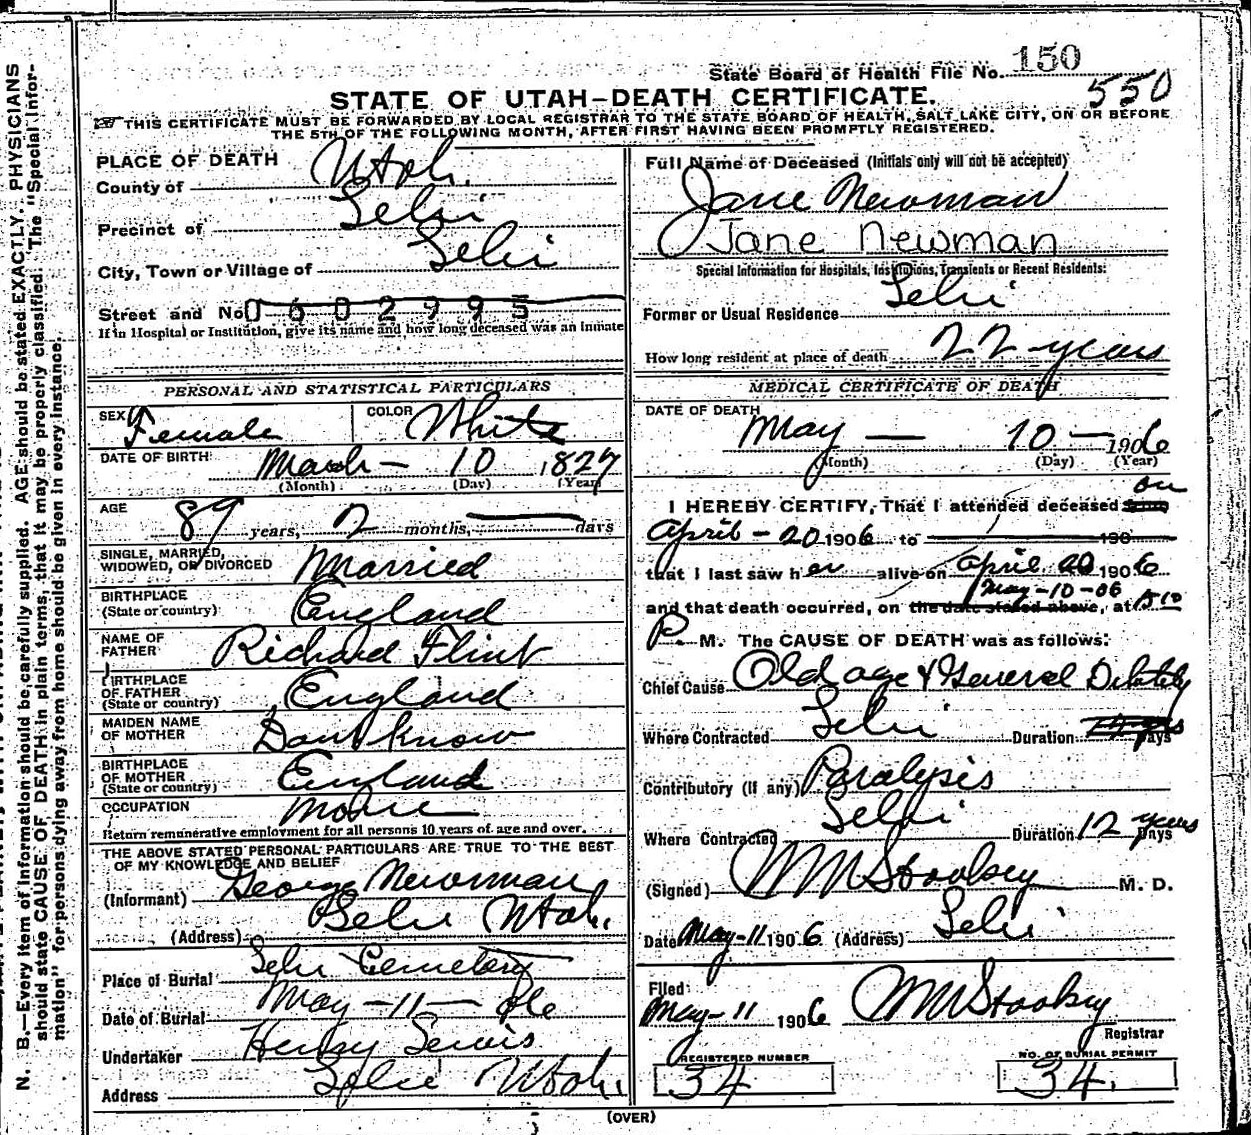 150
State Board of Health File No.
550
STATE OF UTAH—DEATH CERTIFICATE.
THIS CERTIFICATE MUST BE FORWARDED BY LOCAL REGISTRAR TO THE STATE BOARD OF HEALTH, SALT LAKE CITY, ON OR BEFORE
THE 5TH OF THE FOLLOWING MONTH, AFTER FIRST HAVING BEEN PROMPTLY REGISTERED.
N. B.—Every item of information should be carefully supplied. AGE should be stated EXACTLY. PHYSICIANS
should state CAUSE OF DEATH in plain terms, that it may be properly classified. The "Special Infor-
mation" for persons dying away from home should be given in every instance.
PLACE OF DEATH
County of Utah.
Precinct of Lehi
City, Town or Village of Lehi
Street and No. 0602995
If in Hospital or Institution, give its name and how long deceased was an inmate
PERSONAL AND STATISTICAL PARTICULARS
SEX Female
COLOR White
DATE OF BIRTH March – 10 1827
(Month) (Day) (Year)
AGE 89 years, 2 months, — days
SINGLE, MARRIED,
WIDOWED, OR DIVORCED Married
BIRTHPLACE
(State or country) England
NAME OF
FATHER Richard Flint
BIRTHPLACE
OF FATHER
(State or country) England
MAIDEN NAME
OF MOTHER Dont know
BIRTHPLACE
OF MOTHER
(State or country) England
OCCUPATION
Return remunerative employment for all persons 10 years of age and over.
THE ABOVE STATED PERSONAL PARTICULARS ARE TRUE TO THE BEST
OF MY KNOWLEDGE AND BELIEF
(Informant) George Newman
(Address) Lehi Utah.
Place of Burial Lehi Cemetery
Date of Burial May – 11 – 06
Undertaker Henry Lewis
Address Lehi Utah
Full Name of Deceased (Initials only will not be accepted)
Jane Newman
Jane Newman
Special Information for Hospitals, Institutions, Transients or Recent Residents:
Former or Usual Residence Lehi
How long resident at place of death 22 years
MEDICAL CERTIFICATE OF DEATH
DATE OF DEATH
May — 10 — 1906
(Month) (Day) (Year)
I HEREBY CERTIFY, That I attended deceased from on
April – 20 1906 to 190
that I last saw her alive on April 20 1906
May-10-06
and that death occurred, on the date stated above, at
P. M. The CAUSE OF DEATH was as follows:
Chief Cause Old age & General Debility
Where Contracted Lehi Duration Days
Contributory (If any) Paralysis
Where Contracted Lehi Duration 12 years Days
(Signed) WM Stookey M. D.
Date May-11 1906 (Address) Lehi
Filed
May-11 1906 WM Stookey
Registrar
REGISTERED NUMBER
34
NO. OF BURIAL PERMIT
34.
(OVER)